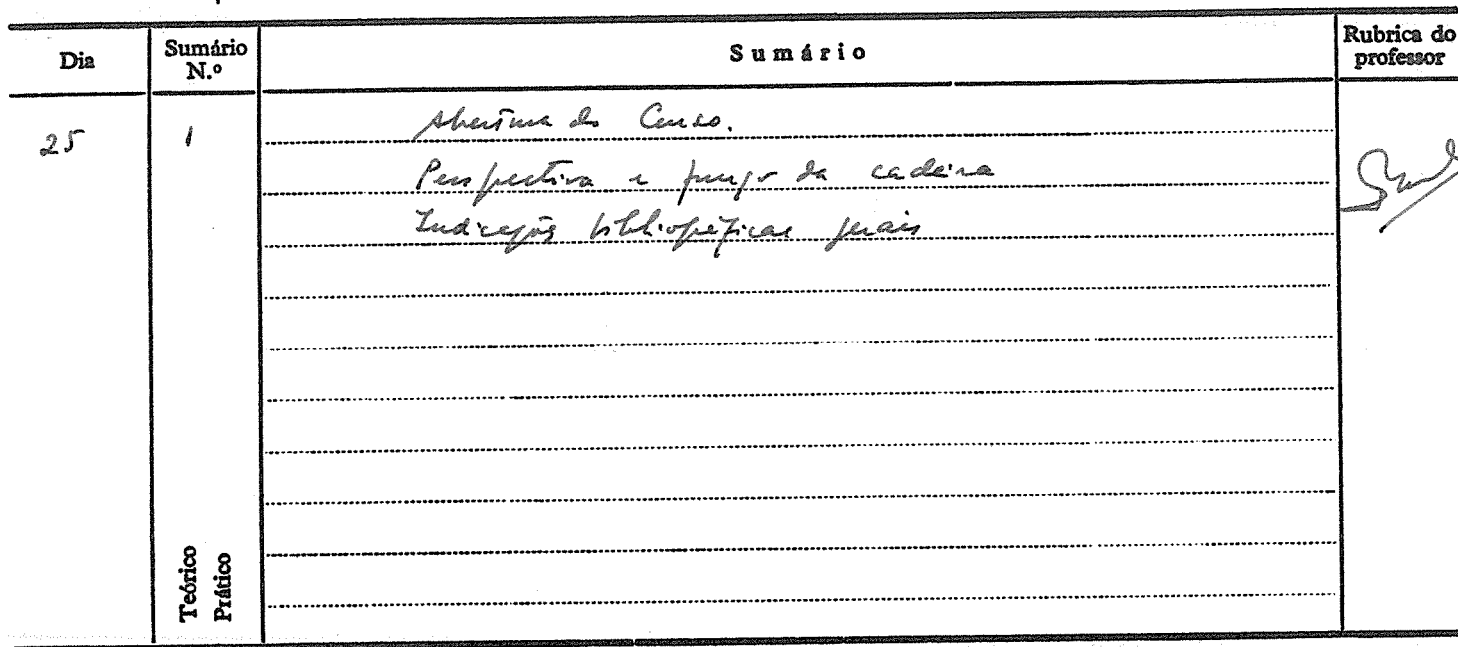 Dia Sumário N.º Sumário Rubrica do professor
25 1 Abertura do Curso.
Perspectiva e função da cadeira
Indicações bibliográficas gerais
Teórico
Prático